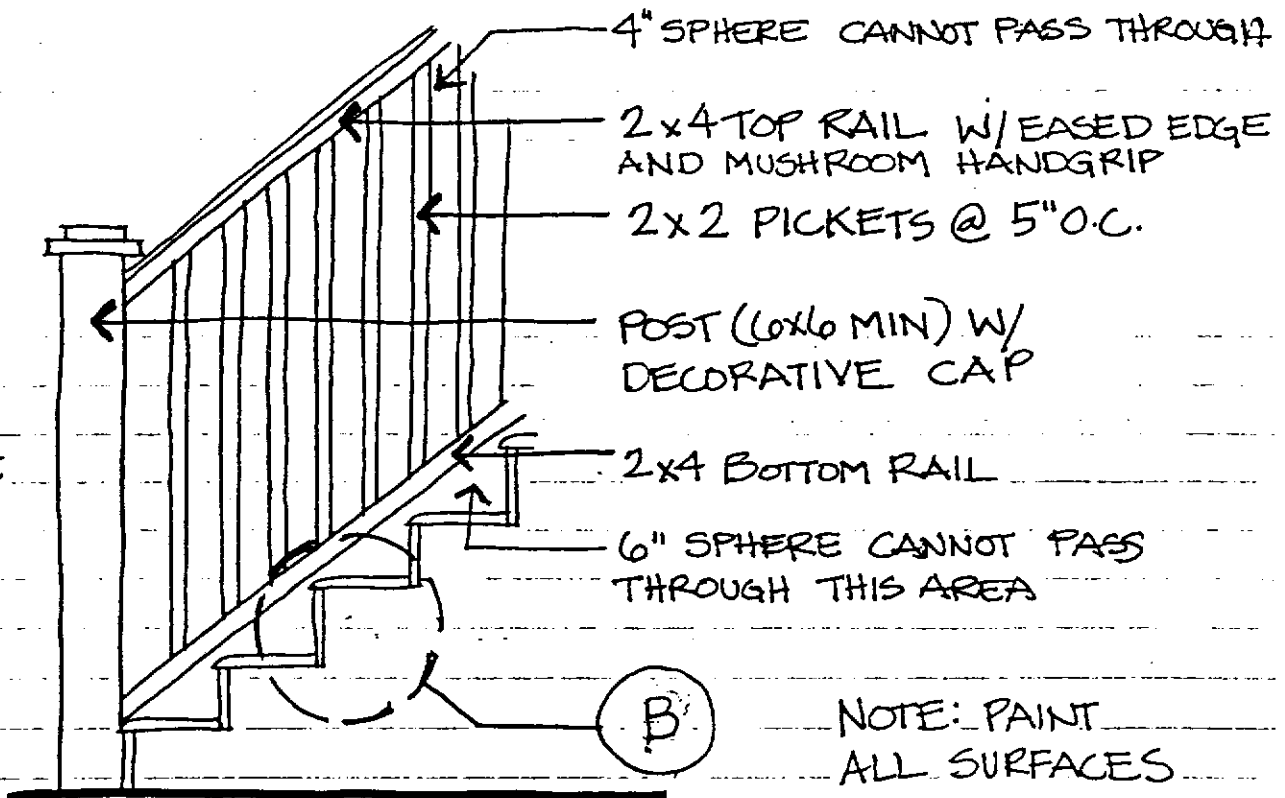 4" SPHERE CANNOT PASS THROUGH
2x4 TOP RAIL W/ EASED EDGE
AND MUSHROOM HANDGRIP
2x2 PICKETS @ 5" O.C.
POST (6x6 MIN) W/
DECORATIVE CAP
2x4 BOTTOM RAIL
6" SPHERE CANNOT PASS
THROUGH THIS AREA
B
NOTE: PAINT
ALL SURFACES